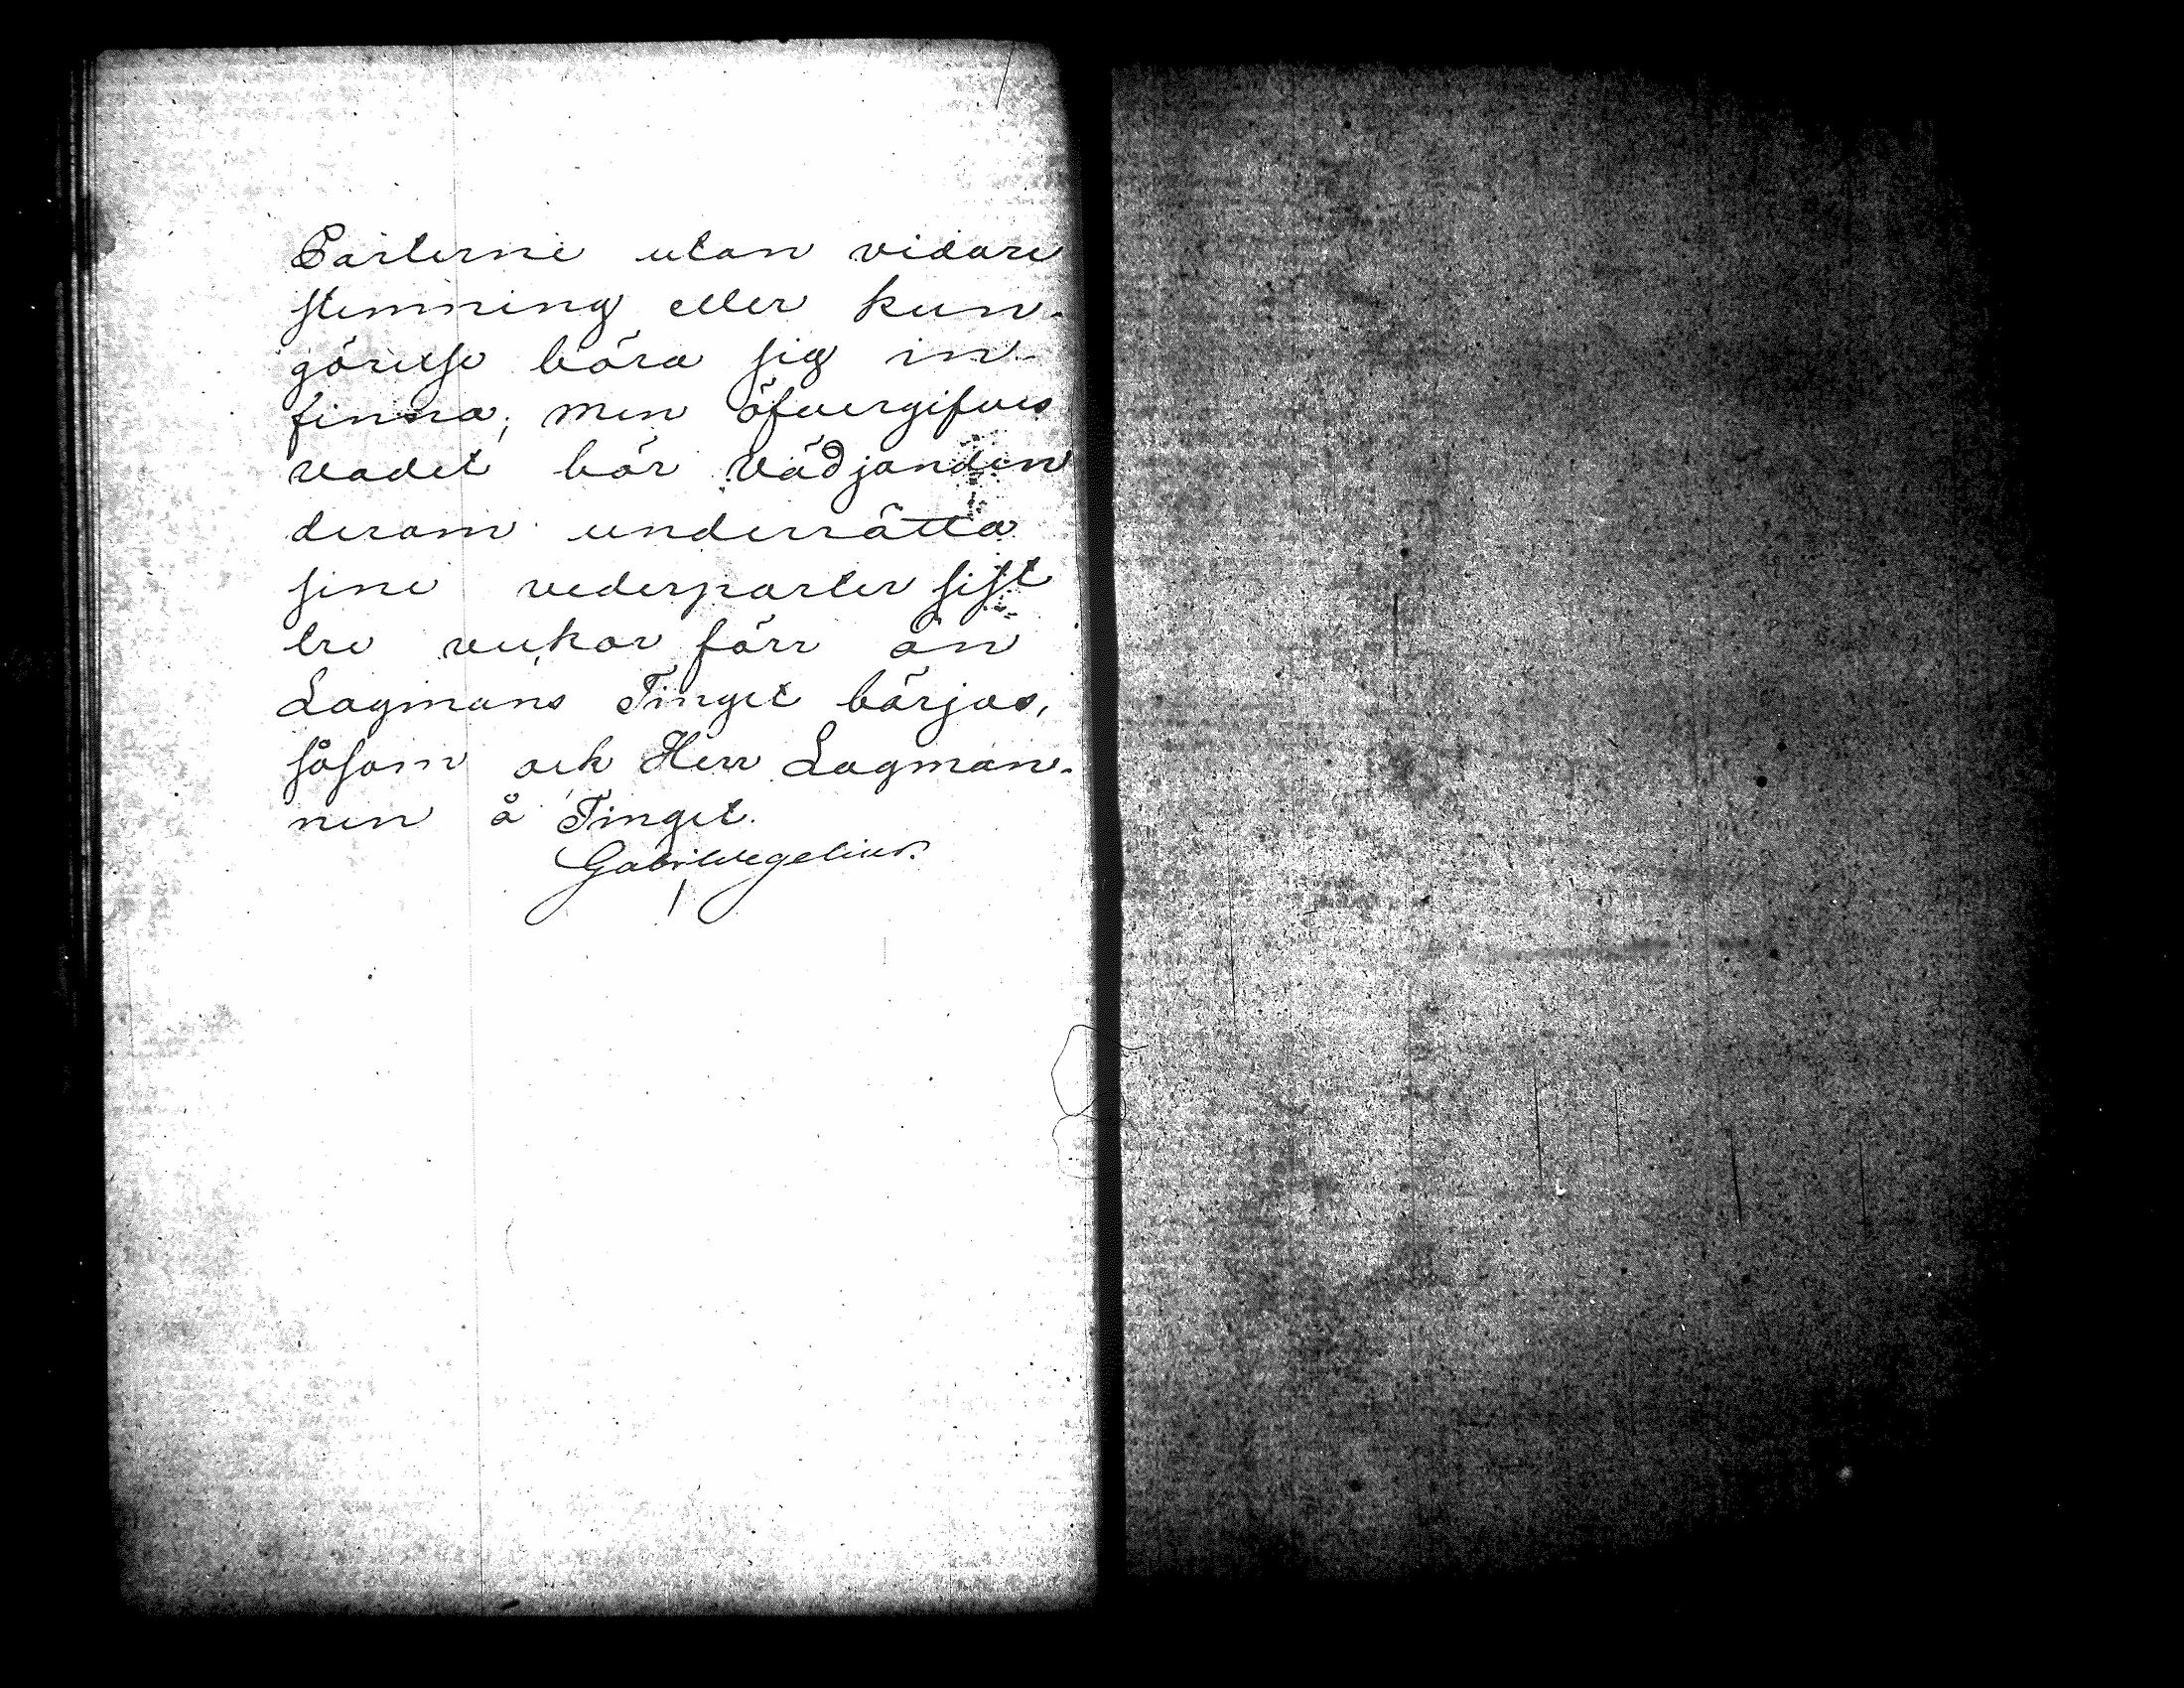 Parterne utan vidare
stemning eller kun-
görelse böra sig in-
finna; men öfvergifves
vadet bör vädjanden
derom underrätta
sine vederparter sist
tre veckor förr än
Lagmans Tinget börjas,
såsom ock Herr Lagman-
nen å Tinget.
Gabr Wegelius.